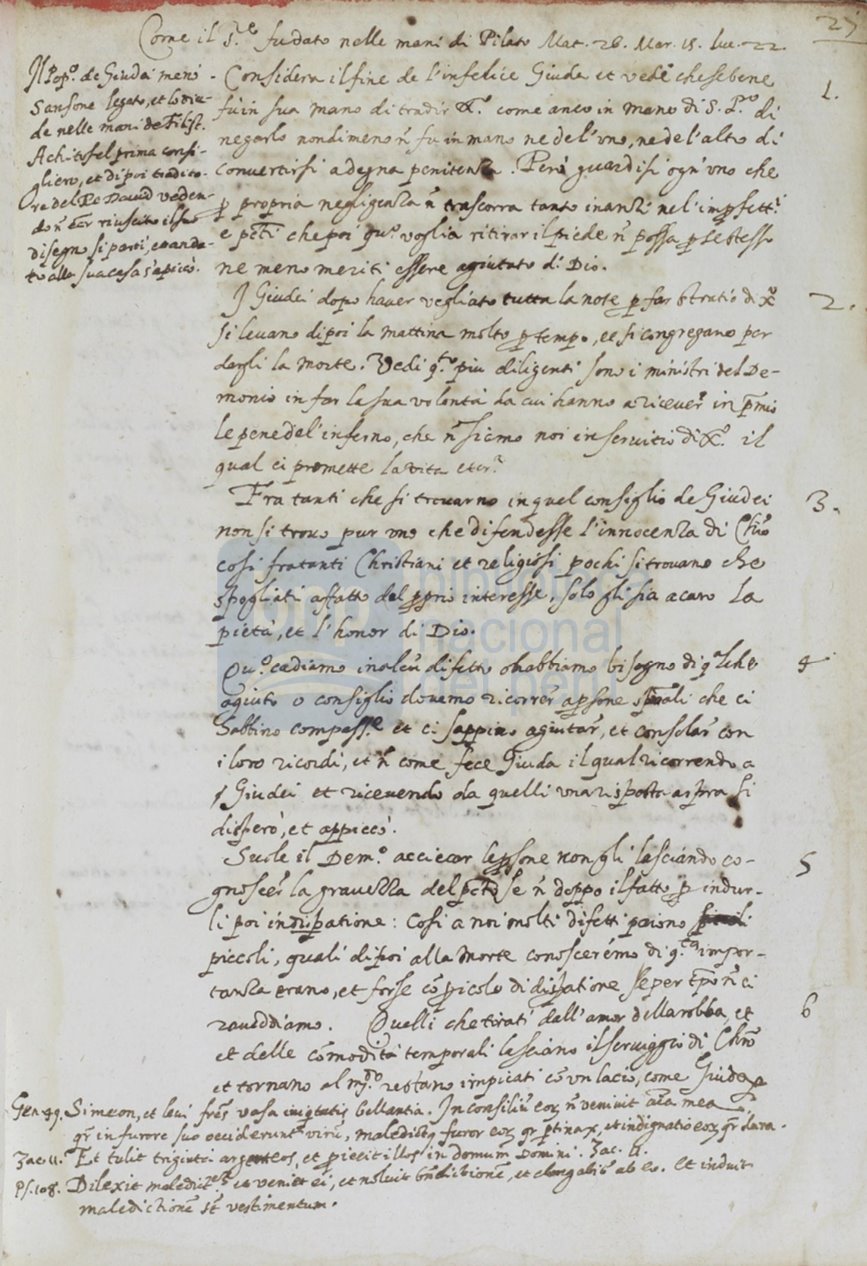 27
Come il S.re fu dato nelle mani di Pilato Mat. 26. Mar. 15. luc. 22.
Il Pop.o de Giuda menò
Sansone legato, et lo die-
de nelle mani de Filist.
Achitofel prima consi-
gliero, et di poi tradito-
re del Re David veden-
do ñ esser riuscito il suo
disegno si partì, et anda-
to alla sua casa s'apiccò.
Considera il fine de l'infelice Giuda et vedi che se bene 1.
fu in sua mano di tradir X.o come anco in mano di S. P.ro di
negarlo nondimeno ñ fu in mano ne del'uno, ne del'altro di
convertirsi a degna penitenza. Però guardisi ogn'uno che
p propria negligenza ñ trascorra tanto inanzi nel'impfett.i
e pcti che poi qu.o voglia ritirar il piede ñ possa p se stesso
ne meno meriti essere agiutato di Dio.
I Giudei dopo haver vegliato tutta la note p far stratio di X.o 2.
si levano di poi la mattina molto p tempo, et si congregano per
dargli la morte. Vedi q.to piu diligenti sono i ministri del De-
monio in far la sua volontà da cui hanno a ricever in pmio
le pene del'inferno, che ñ siamo noi in servitio di X.o il
qual ci promette la vita eter.a
Fra tanti che si trovarno in quel consiglio de Giudei 3.
non si trovò pur uno che difendesse l'innocenza di Chro
cosi fra tanti Christiani et religiosi pochi si trovano che
spogliati affatto del pprio interesse, solo gli sia a caro la
pietà, et l'honor di Dio.
Qu.o cadiamo in alcũ difetto o habbiamo bisogno di q.lche 4
agiuto o consiglio dovemo ricorrer a psone spũali che ci
habbino compass.e et ci sappino agiutar, et consolar con
i loro ricordi, et ñ come fece Giuda il qual ricorrendo a
i Giudei et ricevendo da quelli una risposta aspra si
disperò, et appiccò.
Suole il Dem.o acciecar le psone non gli lasciando co- 5
gnoscer la gravezza del pctõ se ñ doppo il fatto p indur-
li poi in dispatione: Cosi a noi molti difetti paiono
piccoli, quali di poi alla morte conosceremo di q.ta impor-
tanza erano, et forse cõ picolo di dispatione se per tpo ñ ci
raveddiamo. Quelli che tirati dall'amor della robba, et 6
et delle cõmodità temporali lasciano il serviggio di Chro
et tornano al mõdo restano impicati cõ un lacio, come Giuda
Gen. 49. Simeon, et levi fres vasa iniqtatis bellantia. In consiliũ eoꝝ ñ veniat aĩa mea
qr in furore suo occiderunt virũ, maledictꝰ furor eoꝝ qr ptinax, et indignatio eoꝝ qr dura.
Zac. 11. Et tulit triginta argenteos, et piecit illos in domum Domini. Zac. 11.
Ps. 108. Dilexit maledict.em et veniet ei, et noluit bñdictionẽ, et elongabitr ab eo. Et induit
maledictionẽ st vestimentum.
biblioteca
nacional
del perú
bnp